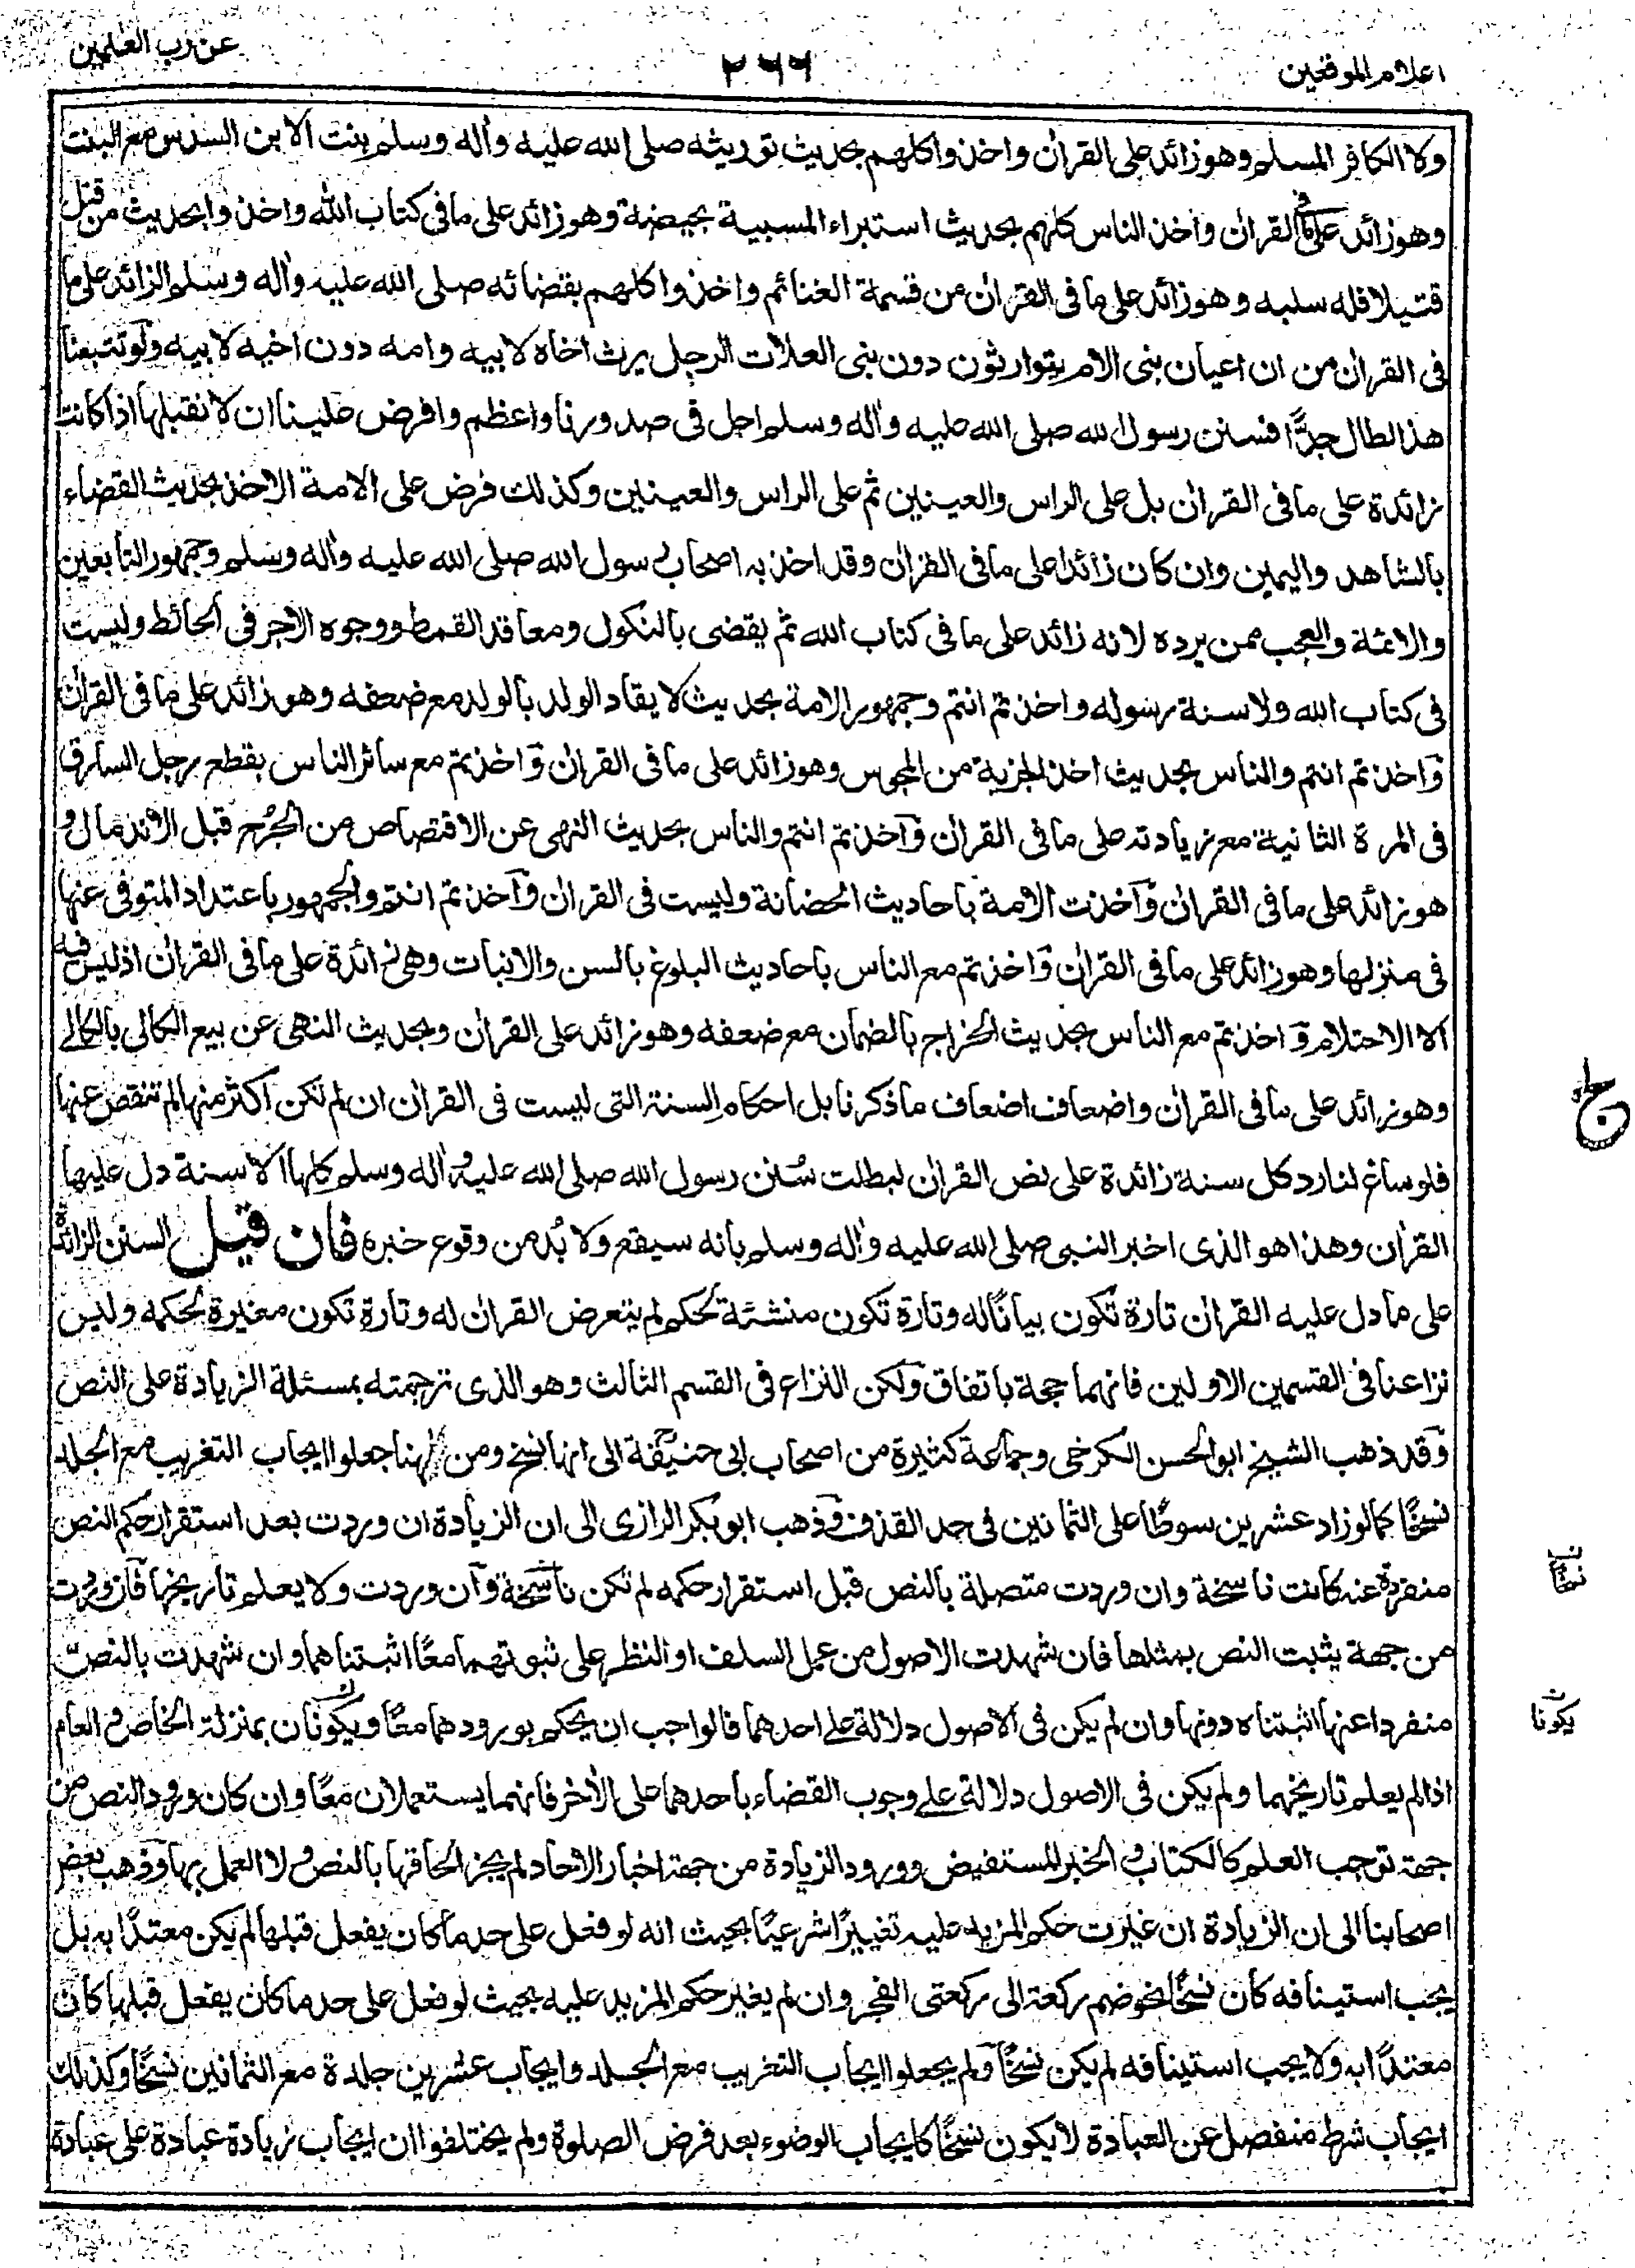 اعلام الموقعين
٢٦٦
عن رب العلمين
ولا الكافر المسلم وهو زائد على القران واخذوا كلهم بحديث توريثه صلى الله عليه واله وسلم بنت الابن السدس مع البنت
وهو زائد على ما فى القران واخذ الناس كلهم بحديث استبراء المسبية بحيضة وهو زائد على ما فى كتاب الله واخذوا بحديث من قتل
قتيلا فله سلبه وهو زائد على ما فى القران من قسمة الغنائم واخذوا كلهم بقضائه صلى الله عليه واله وسلم الزائد على ما
فى القران من ان اعيان بنى الام يتوارثون دون بنى العلات الرجل يرث اخاه لابيه وامه دون اخيه لابيه ولو تتبعنا
هذا لطال جدًّا فسنن رسول الله صلى الله عليه واله وسلم اجل فى صدورنا واعظم وافرض علينا ان لا نقبلها اذا كانت
زائدة على ما فى القران بل على الراس والعينين ثم على الراس والعينين وكذلك فرض على الامة الاخذ بحديث القضاء
بالشاهد واليمين وان كان زائدا على ما فى القران وقد اخذ به اصحاب رسول الله صلى الله عليه واله وسلم وجمهور التابعين
والائمة والعجب ممن يرده لانه زائد على ما فى كتاب الله ثم يقضى بالنكول ومعاقد القمط ووجوه الاجر فى الحائط وليست
فى كتاب الله ولا سنة رسوله واخذتم انتم وجمهور الامة بحديث لا يقاد الولد بالولد مع ضعفه وهو زائد على ما فى القران
واخذتم انتم والناس بحديث اخذ الجزية من المجوس وهو زائد على ما فى القران واخذتم مع سائر الناس بقطع رجل السارق
فى المرة الثانية مع زيادته على ما فى القران واخذتم انتم والناس بحديث النهى عن الاقتصاص من الجُرح قبل الاندمال و
هو زائد على ما فى القران واخذت الامة باحاديث الحضانة وليست فى القران واخذتم انتم والجمهور باعتداد المتوفى عنها
فى منزلها وهو زائد على ما فى القران واخذتم مع الناس باحاديث البلوغ بالسن والانبات وهى زائدة على ما فى القران اذ ليس فيه
الا الاحتلام واخذتم مع الناس بحديث الخراج بالضمان مع ضعفه وهو زائد على القران وبحديث النهى عن بيع الكالى بالكالے
وهو زائد على ما فى القران واضعاف اضعاف ما ذكرنا بل احكام السنة التى ليست فى القران ان لم تكن اكثر منها لم تنقص عنها
فلو ساغ لنا رد كل سنة زائدة على نص القران لبطلت سُنن رسول الله صلى الله عليه واله وسلم كلها الا سنة دل عليها
القران وهذا هو الذى اخبر النبى صلى الله عليه واله وسلم بانه سيقع ولا بُد من وقوع خبره فان قيل السنن الزائدة
على ما دل عليه القران تارة تكون بيانًا له وتارة تكون منشئة لحكم لم يتعرض القران له وتارة تكون مغيرة لحكمه وليس
نزاعنا فى القسمين الاولين فانهما حجة باتفاق ولكن النزاع فى القسم الثالث وهو الذى ترجمته بمسئلة الزيادة على النص
وقد ذهب الشيخ ابو الحسن الكرخى وجماعة كثيرة من اصحاب ابى حنيفة الى انها نسخ ومن ههنا جعلوا ايجاب التغريب مع الجلد
نسخًا كما لو زاد عشرين سوطًا على الثمانين فى حد القذف وذهب ابو بكر الرازى الى ان الزيادة ان وردت بعد استقرار حكم النص
منفردة عنه كانت ناسخة وان وردت متصلة بالنص قبل استقرار حكمه لم تكن ناسخة وان وردت ولا يعلم تاريخها فان وردت
من جهة يثبت النص بمثلها فان شهدت الاصول من عمل السلف او النظر على ثبوتهما معًا اثبتناهما وان شهدت بالنص
منفردا عنها اثبتناه دونها وان لم يكن فى الاصول دلالة علے احدهما فالواجب ان يحكم بورودهما معًا ويكونان بمنزلة الخاص و العام
اذا لم يعلم تاريخهما ولم يكن فى الاصول دلالة علے وجوب القضاء باحدهما على الاخر فانهما يستعملان معًا وان كان ورود النص من
جهة توجب العلم كالكتاب و الخبر المستفيض وورود الزيادة من جهة اخبار الاحاد لم يجز الحاقها بالنص و لا العمل بها وذهب بعض
اصحابنا الى ان الزيادة ان غيرت حكم المزيد عليه تغييرًا شرعيًا بحيث انه لو فعل على حد ما كان يفعل قبلها لم يكن معتدًا به بل
يجب استينافه كان نسخًا نحو ضم ركعة الى ركعتى الفجر وان لم يغير حكم المزيد عليه بحيث لو فعل على حد ما كان يفعل قبلها كان
معتدًا به ولا يجب استينافه لم يكن نسخًا ولم يجعلوا ايجاب التغريب مع الجلد وايجاب عشرين جلدة مع الثمانين نسخًا وكذلك
ايجاب شرط منفصل عن العبادة لا يكون نسخًا كايجاب الوضوء بعد فرض الصلوة ولم يختلفوا ان ايجاب زيادة عبادة على عبادة
يكونا